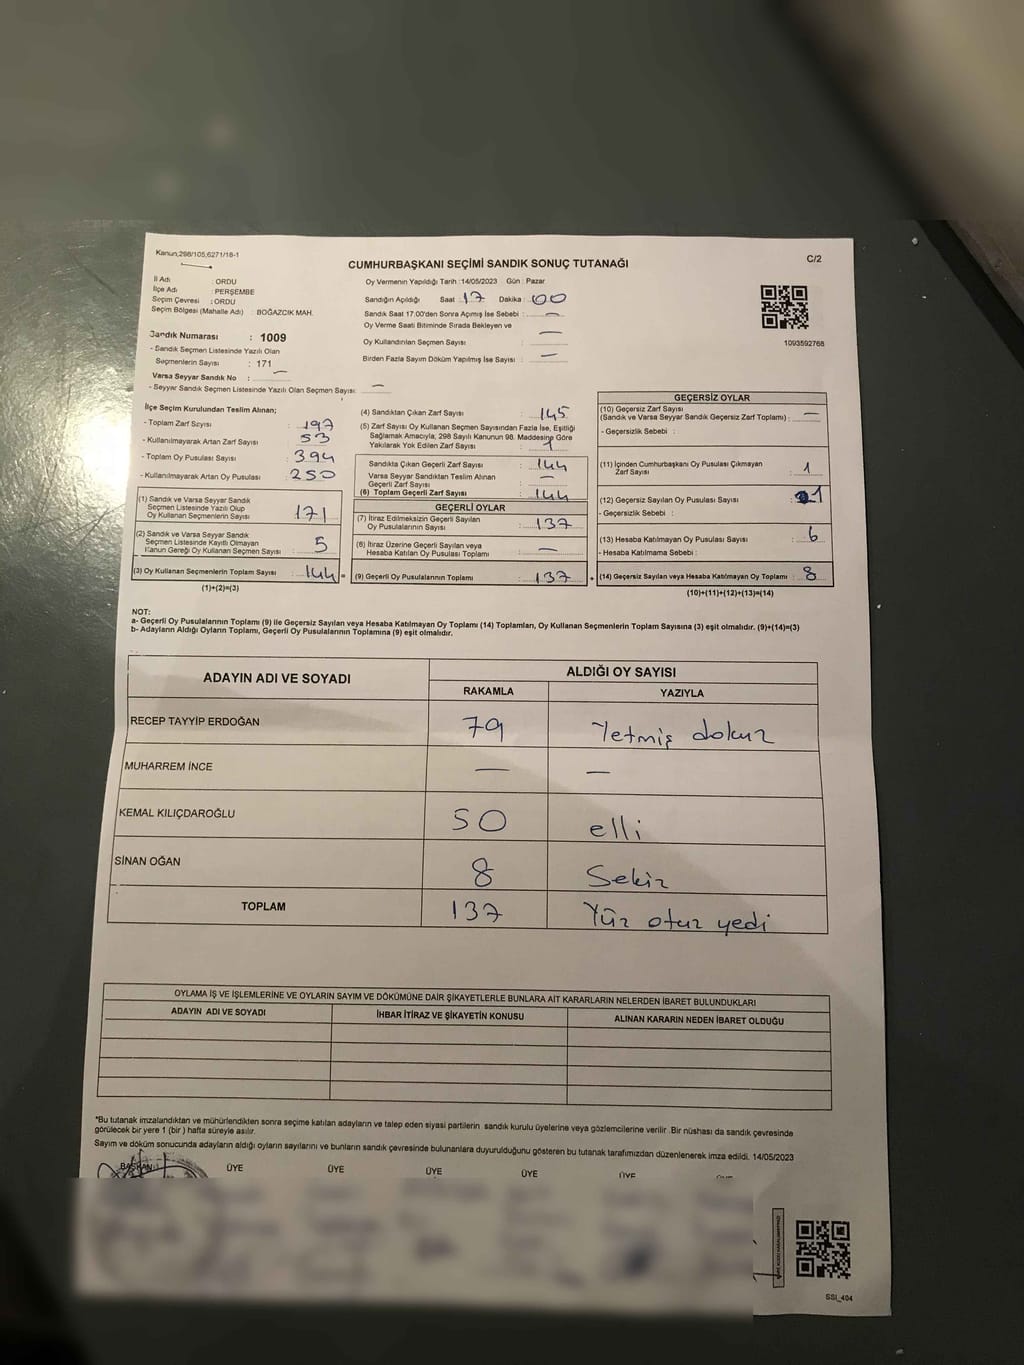 Kanun;298/105;6271/18-1
CUMHURBAŞKANI SEÇİMİ SANDIK SONUÇ TUTANAĞI
C/2
İl Adı : ORDU
İlçe Adı : PERŞEMBE
Seçim Çevresi : ORDU
Seçim Bölgesi (Mahalle Adı) : BOĞAZCIK MAH.
Oy Vermenin Yapıldığı Tarih :14/05/2023 Gün : Pazar
Sandığın Açıldığı Saat : 17 Dakika : 00
Sandık Saat 17.00'den Sonra Açılmış İse Sebebi : —
Oy Verme Saati Bitiminde Sırada Bekleyen ve
Oy Kullandırılan Seçmen Sayısı : —
Birden Fazla Sayım Döküm Yapılmış İse Sayısı : —
1093592768
Sandık Numarası : 1009
- Sandık Seçmen Listesinde Yazılı Olan
Seçmenlerin Sayısı : 171
Varsa Seyyar Sandık No : —
- Seyyar Sandık Seçmen Listesinde Yazılı Olan Seçmen Sayısı: —
İlçe Seçim Kurulundan Teslim Alınan;
- Toplam Zarf Sayısı : 197
- Kullanılmayarak Artan Zarf Sayısı : 53
- Toplam Oy Pusulası Sayısı : 394
- Kullanılmayarak Artan Oy Pusulası : 250
(1) Sandık ve Varsa Seyyar Sandık
Seçmen Listesinde Yazılı Olup
Oy Kullanan Seçmenlerin Sayısı : 171
(2) Sandık ve Varsa Seyyar Sandık
Seçmen Listesinde Kayıtlı Olmayan
Kanun Gereği Oy Kullanan Seçmen Sayısı : 5
(3) Oy Kullanan Seçmenlerin Toplam Sayısı : 144 =
(1)+(2)=(3)
(4) Sandıktan Çıkan Zarf Sayısı : 145
(5) Zarf Sayısı Oy Kullanan Seçmen Sayısından Fazla İse, Eşitliği
Sağlamak Amacıyla, 298 Sayılı Kanunun 98. Maddesine Göre
Yakılarak Yok Edilen Zarf Sayısı : 1
Sandıkta Çıkan Geçerli Zarf Sayısı : 144
Varsa Seyyar Sandıktan Teslim Alınan
Geçerli Zarf Sayısı : —
(6) Toplam Geçerli Zarf Sayısı : 144
GEÇERLİ OYLAR
(7) İtiraz Edilmeksizin Geçerli Sayılan
Oy Pusulalarının Sayısı : 137
(8) İtiraz Üzerine Geçerli Sayılan veya
Hesaba Katılan Oy Pusulası Toplamı : —
(9) Geçerli Oy Pusulalarının Toplamı : 137 +
GEÇERSİZ OYLAR
(10) Geçersiz Zarf Sayısı
(Sandık ve Varsa Seyyar Sandık Geçersiz Zarf Toplamı) : —
- Geçersizlik Sebebi :
(11) İçinden Cumhurbaşkanı Oy Pusulası Çıkmayan
Zarf Sayısı : 1
(12) Geçersiz Sayılan Oy Pusulası Sayısı : 1
- Geçersizlik Sebebi :
(13) Hesaba Katılmayan Oy Pusulası Sayısı : 6
- Hesaba Katılmama Sebebi :
(14) Geçersiz Sayılan veya Hesaba Katılmayan Oy Toplamı : 8
(10)+(11)+(12)+(13)=(14)
NOT:
a- Geçerli Oy Pusulalarının Toplamı (9) ile Geçersiz Sayılan veya Hesaba Katılmayan Oy Toplamı (14) Toplamları, Oy Kullanan Seçmenlerin Toplam Sayısına (3) eşit olmalıdır. (9)+(14)=(3)
b- Adayların Aldığı Oyların Toplamı, Geçerli Oy Pusulalarının Toplamına (9) eşit olmalıdır.
ADAYIN ADI VE SOYADI
ALDIĞI OY SAYISI
RAKAMLA YAZIYLA
RECEP TAYYİP ERDOĞAN 79 Yetmiş dokuz
MUHARREM İNCE — —
KEMAL KILIÇDAROĞLU 50 elli
SİNAN OĞAN 8 Sekiz
TOPLAM 137 Yüz otuz yedi
OYLAMA İŞ VE İŞLEMLERİNE VE OYLARIN SAYIM VE DÖKÜMÜNE DAİR ŞİKAYETLERLE BUNLARA AİT KARARLARIN NELERDEN İBARET BULUNDUKLARI
ADAYIN ADI VE SOYADI İHBAR İTİRAZ VE ŞİKAYETİN KONUSU ALINAN KARARIN NEDEN İBARET OLDUĞU
*Bu tutanak imzalandıktan ve mühürlendikten sonra seçime katılan adayların ve talep eden siyasi partilerin sandık kurulu üyelerine veya gözlemcilerine verilir. Bir nüshası da sandık çevresinde
görülecek bir yere 1 (bir) hafta süreyle asılır.
Sayım ve döküm sonucunda adayların aldığı oyların sayılarını ve bunların sandık çevresinde bulunanlara duyurulduğunu gösteren bu tutanak tarafımızdan düzenlenerek imza edildi. 14/05/2023
BAŞKAN ÜYE ÜYE ÜYE ÜYE ÜYE ÜYE
SSI_404